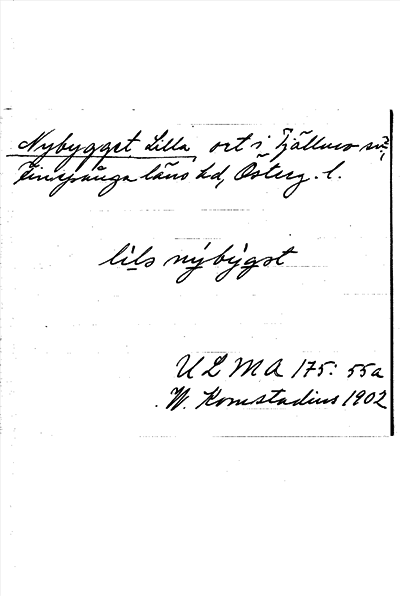 Nybygget Lilla ort i Tjällmo sn,
Finspånga läns hd, Österg. l.
lils nýbýgst
ULMA 175: 55a
W. Komstadius 1902